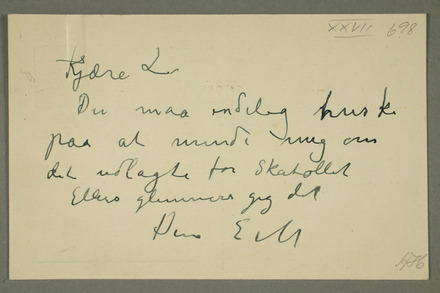 XXVII 698
Kjære L
Du maa endelig huske
paa at minde mig om
det udlagte for Skatollet
Ellers glemmer jeg det
Din E M